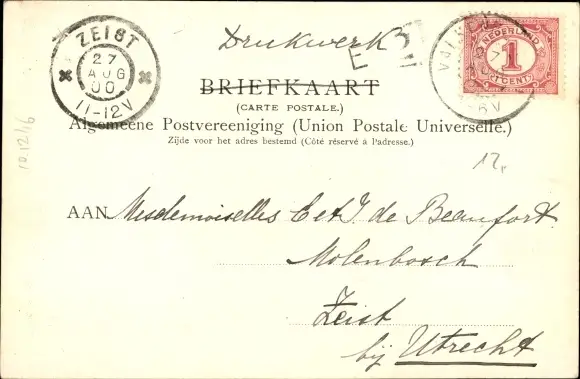 ZEIST
27
AUG
00
11-12V
Drukwerk
E
NEDERLAND
1
CENT
BRIEFKAART
(CARTE POSTALE.)
Algemeene Postvereeniging (Union Postale Universelle.)
Zijde voor het adres bestemd (Côté réservé à l'adresse.)
10.12/16
12,
AAN Mesdemoiselles C et J. de Beaufort.
Molenbosch
Zeist
bij Utrecht